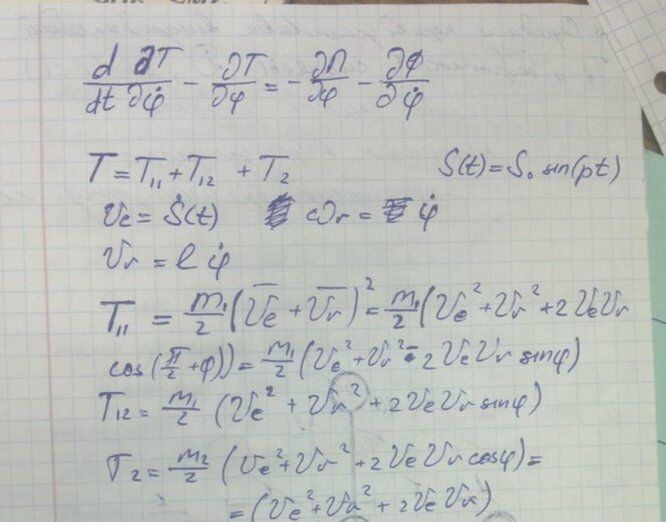 d/dt ∂T/∂φ̇ − ∂T/∂φ = −∂П/∂φ − ∂Φ/∂φ̇
T = T₁₁ + T₁₂ + T₂ S(t) = S₀ sin(pt)
Ve = Ṡ(t) ωr = φ̇
Vr = l φ̇
T₁₁ = m₁/2 (V̄e + V̄r)² = m₁/2 (Ve² + Vr² + 2 Ve Vr
cos(π/2 + φ)) = m₁/2 (Ve² + Vr² − 2 Ve Vr sinφ)
T₁₂ = m₁/2 (Ve² + Vr² + 2 Ve Vr sinφ)
T₂ = m₂/2 (Ve² + Vr² + 2 Ve Vr cosφ) =
= (Ve² + Vr² + 2 Ve Vr)